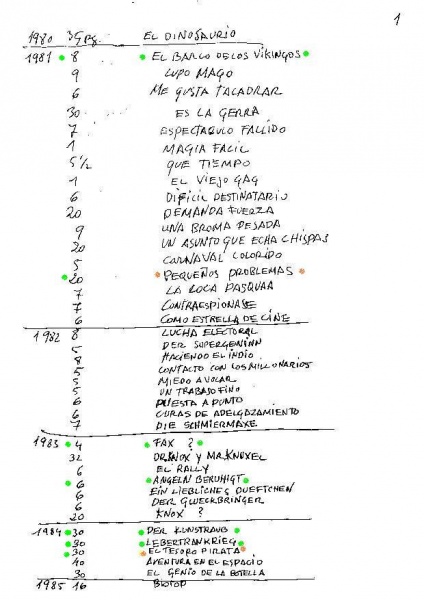 1
1980 34 Pg. EL DINOSAURIO
1981 8 EL BARCO DE LOS VIKINGOS
9 LUPO MAGO
6 ME GUSTA TALADRAR
30 ES LA GERRA
7 ESPECTACULO FALLIDO
1 MAGIA FACIL
5 1/2 QUE TIEMPO
1 EL VIEJO GAG
6 DIFICIL DESTINATARIO
20 DEMANDA FUERZA
9 UNA BROMA PESADA
20 UN ASUNTO QUE ECHA CHISPAS
5 CARNAVAL COLORIDO
20 PEQUEÑOS PROBLEMAS
7 LA LOCA PASQUAA
7 CONTRAESPIONASE
6 COMO ESTRELLA DE CINE
1982 8 LUCHA ELECTORAL
5 DER SUPERGENINN
8 HACIENDO EL INDIO
5 CONTACTO CON LOS MILLONARIOS
5 MIEDO A VOLAR
5 UN TRABAJO FINO
6 PUESTA A PUNTO
6 CURAS DE ADELGAZAMIENTO
7 DIE SCHMIERMAXE
1983 4 FAX ?
32 DR. KNOX Y MR. KNOXEL
6 EL RALLY
6 ANGELN BERUHIGT
6 EIN LIEBLICHES DUEFTCHEN
6 DER GLUECKBRINGER
20 KNOX ?
1984 30 DER KUNSTRAUB
30 LEBERTRANKRIEG
30 EL TESORO PIRATA
40 AVENTURA EN EL ESPACIO
30 EL GENIO DE LA BOTELLA
1985 16 BIOTOP